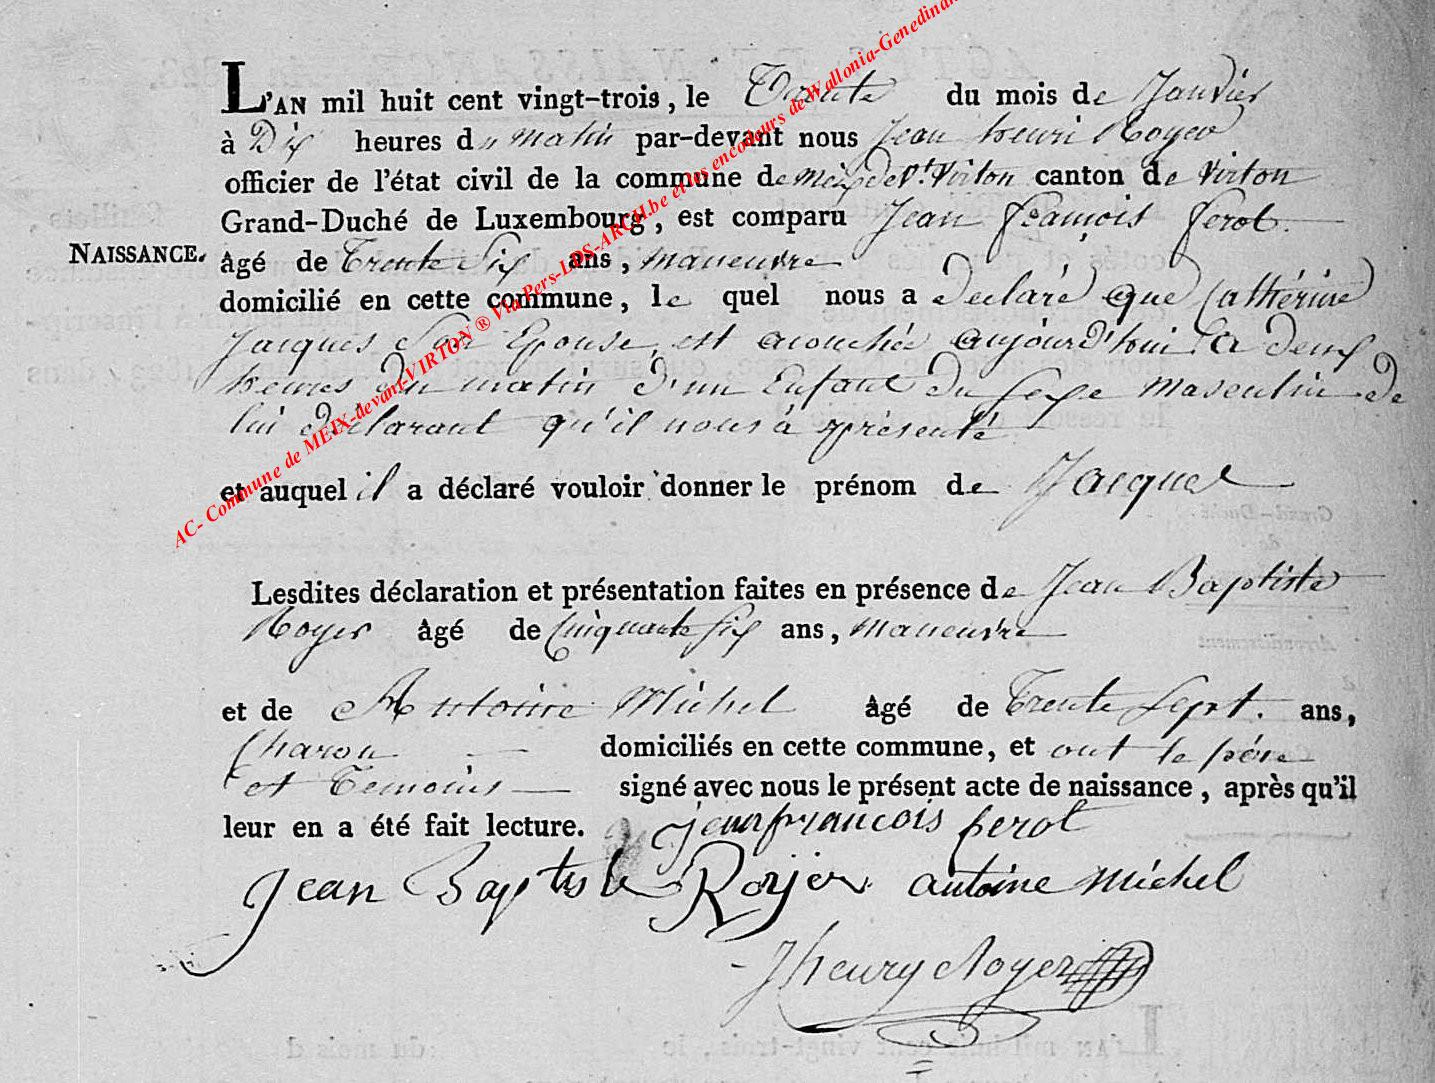 L'AN mil huit cent vingt-trois, le Trente du mois de Janvier
à Dix heures du matin par-devant nous Jean henri Royer
officier de l'état civil de la commune de meix devt. Virton canton de Virton
Grand-Duché de Luxembourg, est comparu Jean françois ferot.
NAISSANCE. âgé de Trente Six ans, maneuvre
domicilié en cette commune, le quel nous a declaré que Cathérine
Jacques Son Epouse, est acouchée aujourd'hui a deux
heures du matin d'un Enfant du sexe masculin de
lui déclarant qu'il nous à présenté
et auquel il a déclaré vouloir donner le prénom de Jacques
Lesdites déclaration et présentation faites en présence de Jean Baptiste
Royer âgé de Cinquante six ans, maneuvre
et de Antoine Michel âgé de Trente Sept. ans,
Charon domiciliés en cette commune, et ont le père
et Temoins signé avec nous le présent acte de naissance, après qu'il
leur en a été fait lecture. jean francois ferot
Jean Baptiste Royer antoine michel
Jhenry Royer
AC- Commune de MEIX-devant-VIRTON ® Via Pers-LDS-ARCH.be et les encodeurs de Wallonia-Genedinan